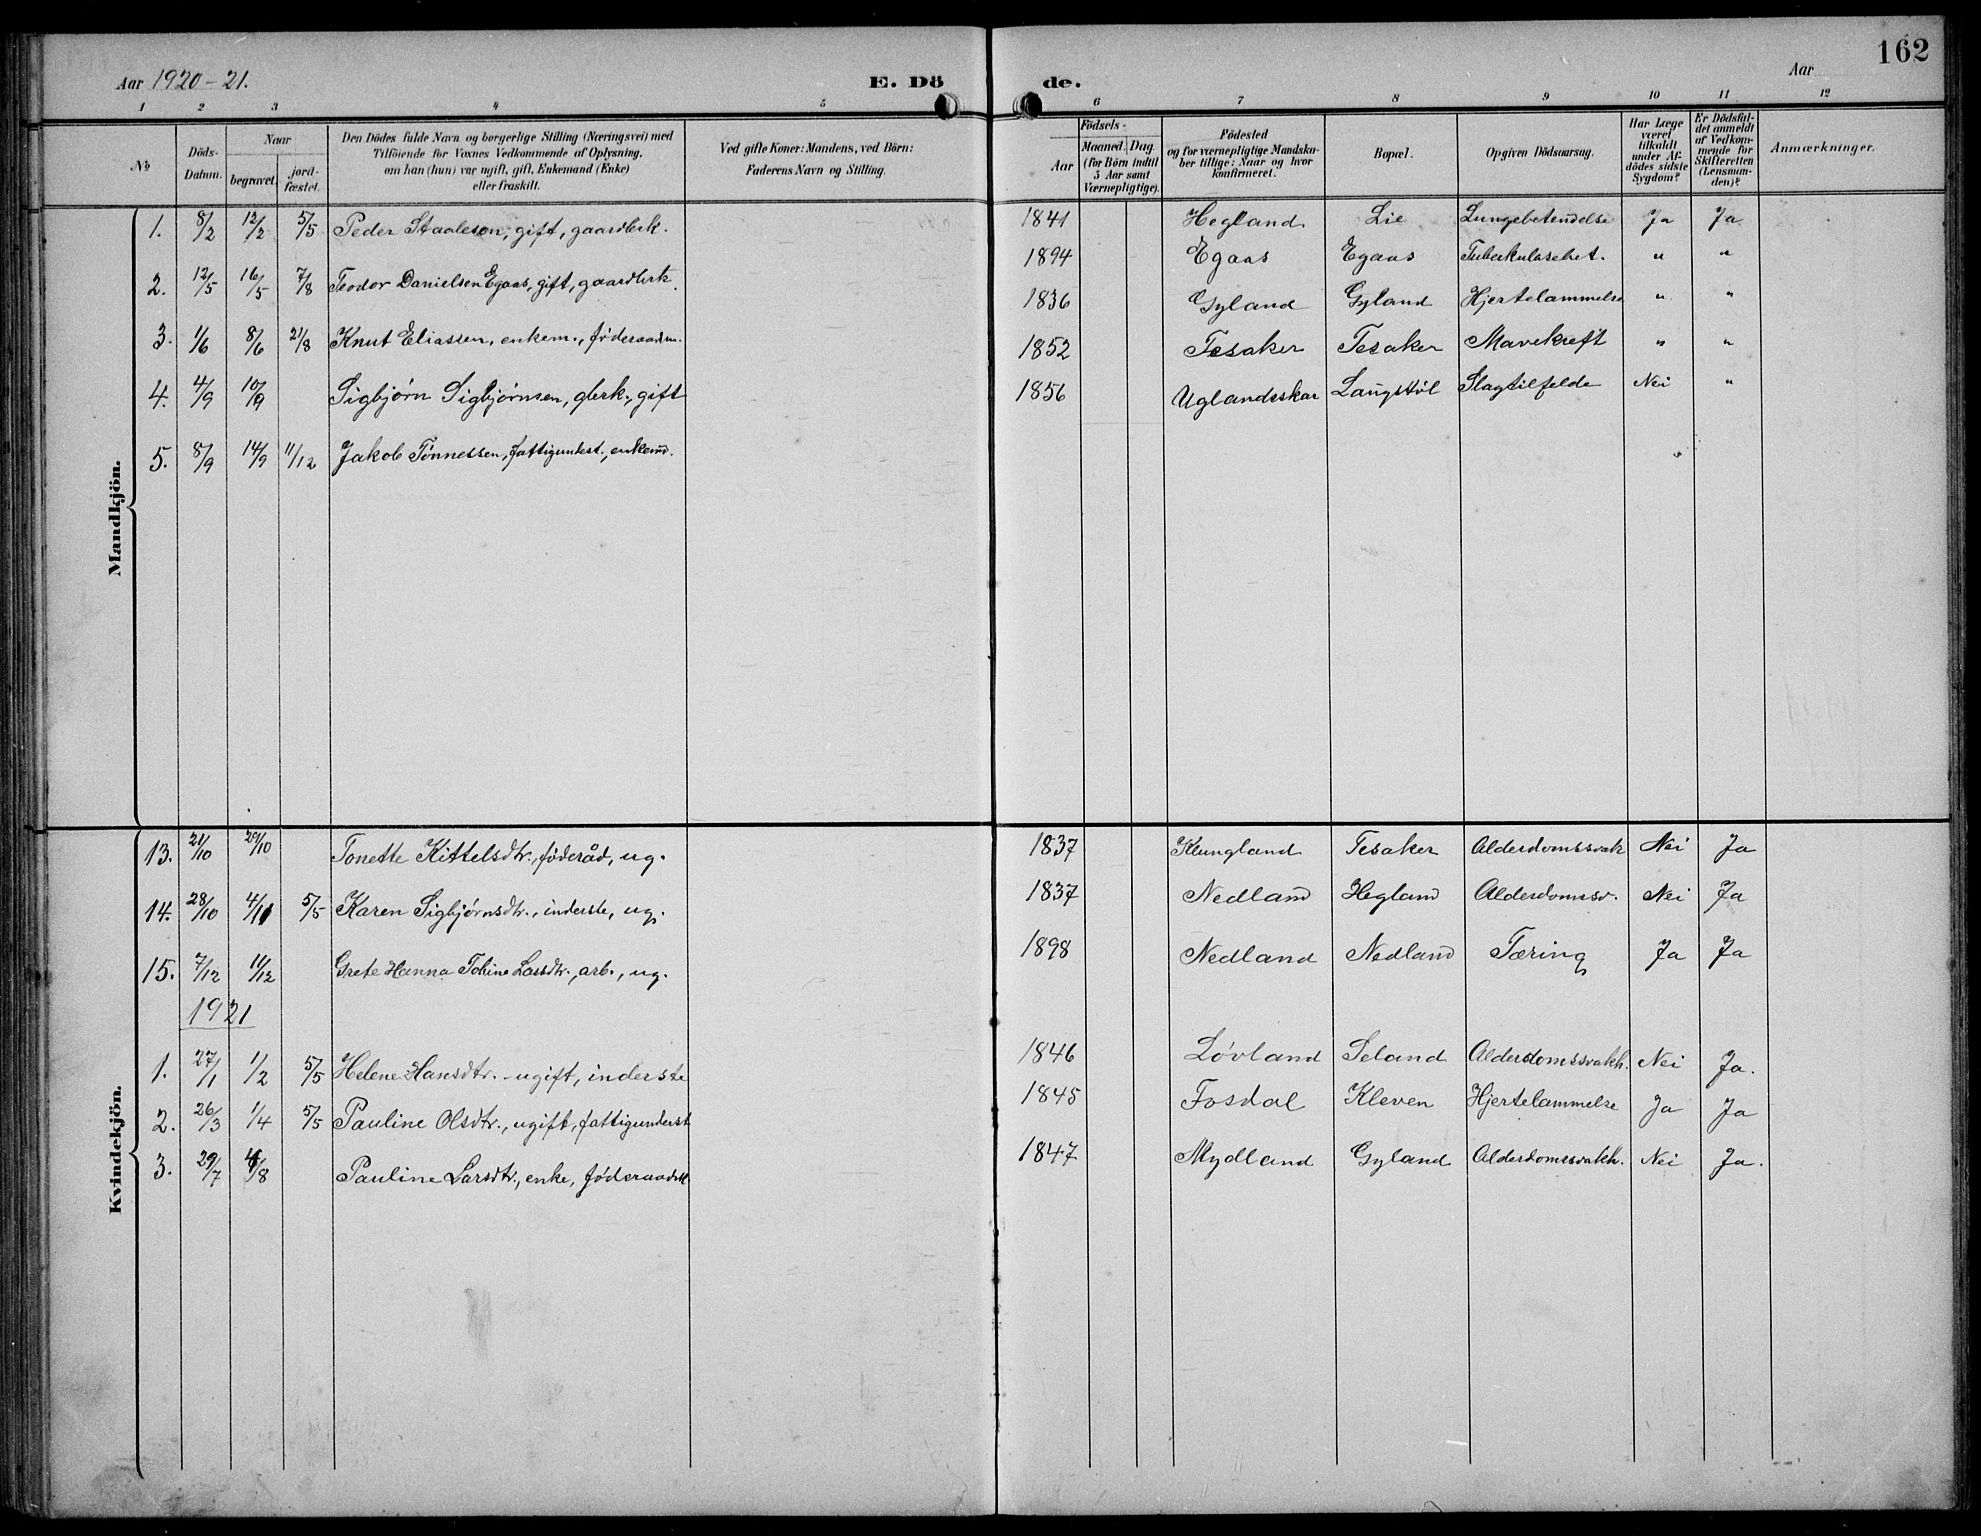 162
Aar 1920-21. E. Dö de. Aar
1 2 3 4 5 6 7 8 9 10 11 12
№ Döds-Datum. Naar begravet. jordfæstet. Den Dödes fulde Navn og borgerlige Stilling (Næringsvei) med Tilföiende for Voxnes Vedkommende af Oplysning, om han (hun) var ugift, gift, Enkemand (Enke) eller fraskilt. Ved gifte Koner: Mandens, ved Börn: Faderens Navn og Stilling. Födsels- Aar Maaned. Dag. (for Börn indtil 5 Aar samt Værnepligtige). Födested og for værnepligtige Mandskaber tillige: Naar og hvor konfirmeret. Bopæl. Opgiven Dödsaarsag. Har Læge været tilkaldt under Afdödes sidste Sygdom? Er Dödsfaldet anmeldt af Vedkommende for Skifteretten (Lensmanden)? Anmærkninger.
Mandkjön.
1. 8/2 12/2 5/5 Peder Staaleson, gift, gaardbrk. 1841 Hegland Lie Lungebetendelse Ja Ja
2. 12/5 16/5 7/8 Teodor Danielsen Egaas, gift, gaardbrk. 1894 Egaas Egaas Tuberkuløsehet. " "
3. 1/6 8/6 21/8 Knut Eliassen, enkem., føderaadm. 1836 Gyland Gyland Hjertelammelse " "
4. 4/9 10/9 Sigbjørn Sigbjørnsen, gbrk., gift 1852 Tesaker Tesaker Mavekreft " "
5. 8/9 14/9 11/12 Jakob Tønnessen, fattigunderst., enkemd. 1856 Uglandsskar Langstøl Slagtilfelde Nei "
Kvindekjön.
13. 21/10 29/10 Tonette Kittelsdtr., føderåd, ug. 1837 Klungland Tesaker Alderdomssvak Nei Ja
14. 28/10 4/11 5/5 Karen Sigbjørnsdtr., inderste, ug. 1837 Nedland Hegland Alderdomssv. Nei Ja
15. 7/12 11/12 Grete Hanna Tohine Larsdtr., arb., ug. 1898 Nedland Nedland Tæring Ja Ja
1921
1. 27/1 1/2 5/5 Helene Hansdtr. - ugift, inderste 1846 Løvland Seland Alderdomssvakh. Nei Ja.
2. 26/3 1/4 5/5 Pauline Olsdtr., ugift, fattigunderst 1845 Fosdal Kleven Hjertelammelse Ja Ja
3. 29/7 4/8 Pauline Larsdtr., enke, føderaadsk 1847 Mydland Gyland Alderdomssvakh. Nei Ja.